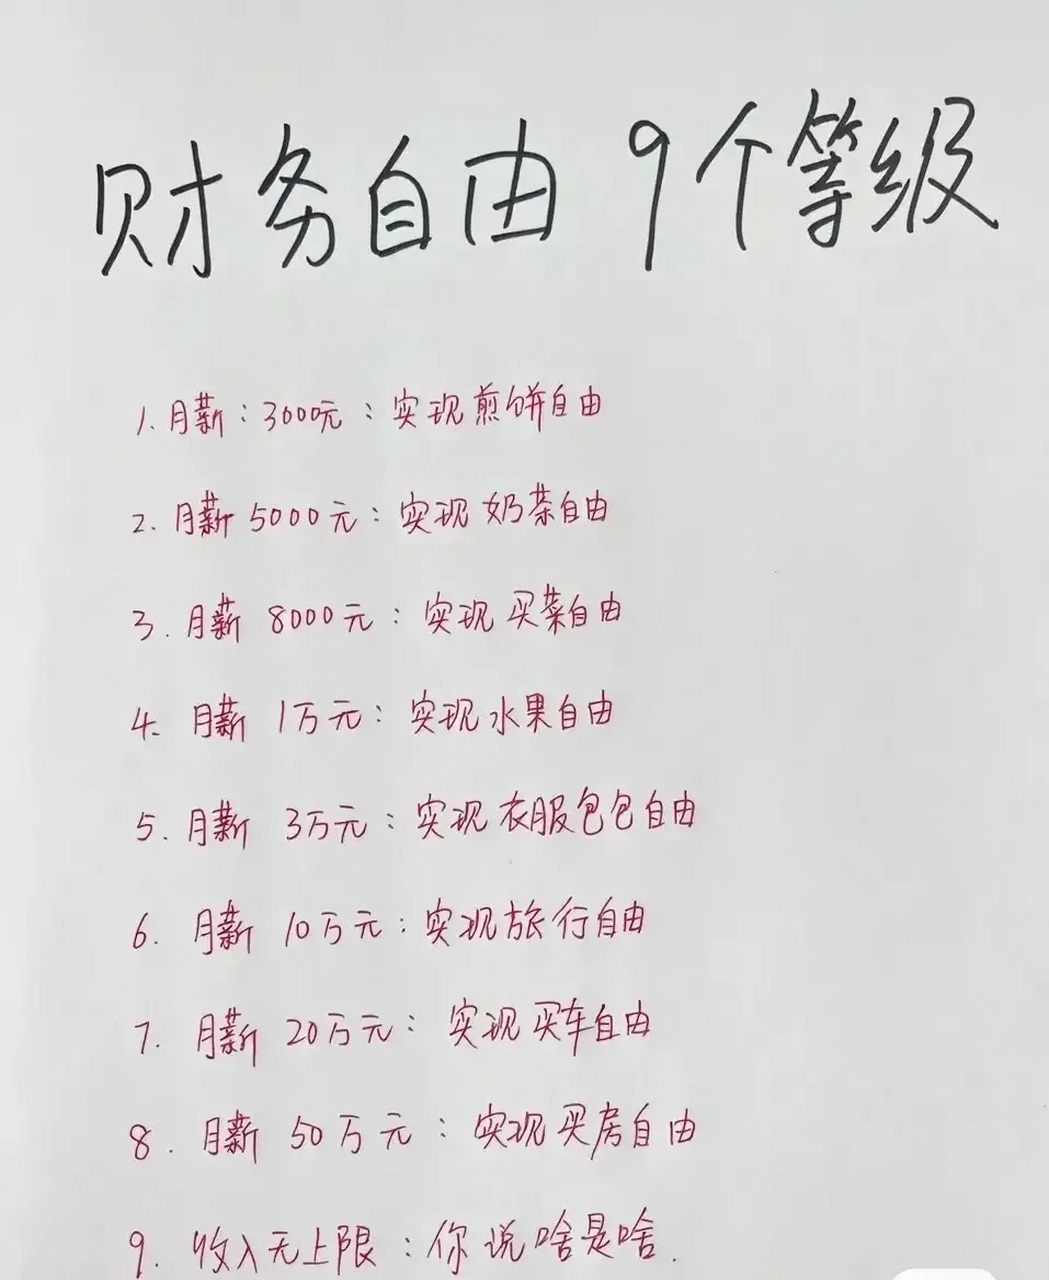 财务自由 9个等级
1. 月薪：3000元：实现煎饼自由
2. 月薪 5000元：实现 奶茶自由
3. 月薪 8000元：实现 买菜自由
4. 月薪 1万元：实现水果自由
5. 月薪 3万元：实现衣服包包自由
6. 月薪 10万元：实现旅行自由
7. 月薪 20万元：实现买车自由
8. 月薪 50万元：实现买房自由
9. 收入无上限：你说啥是啥.